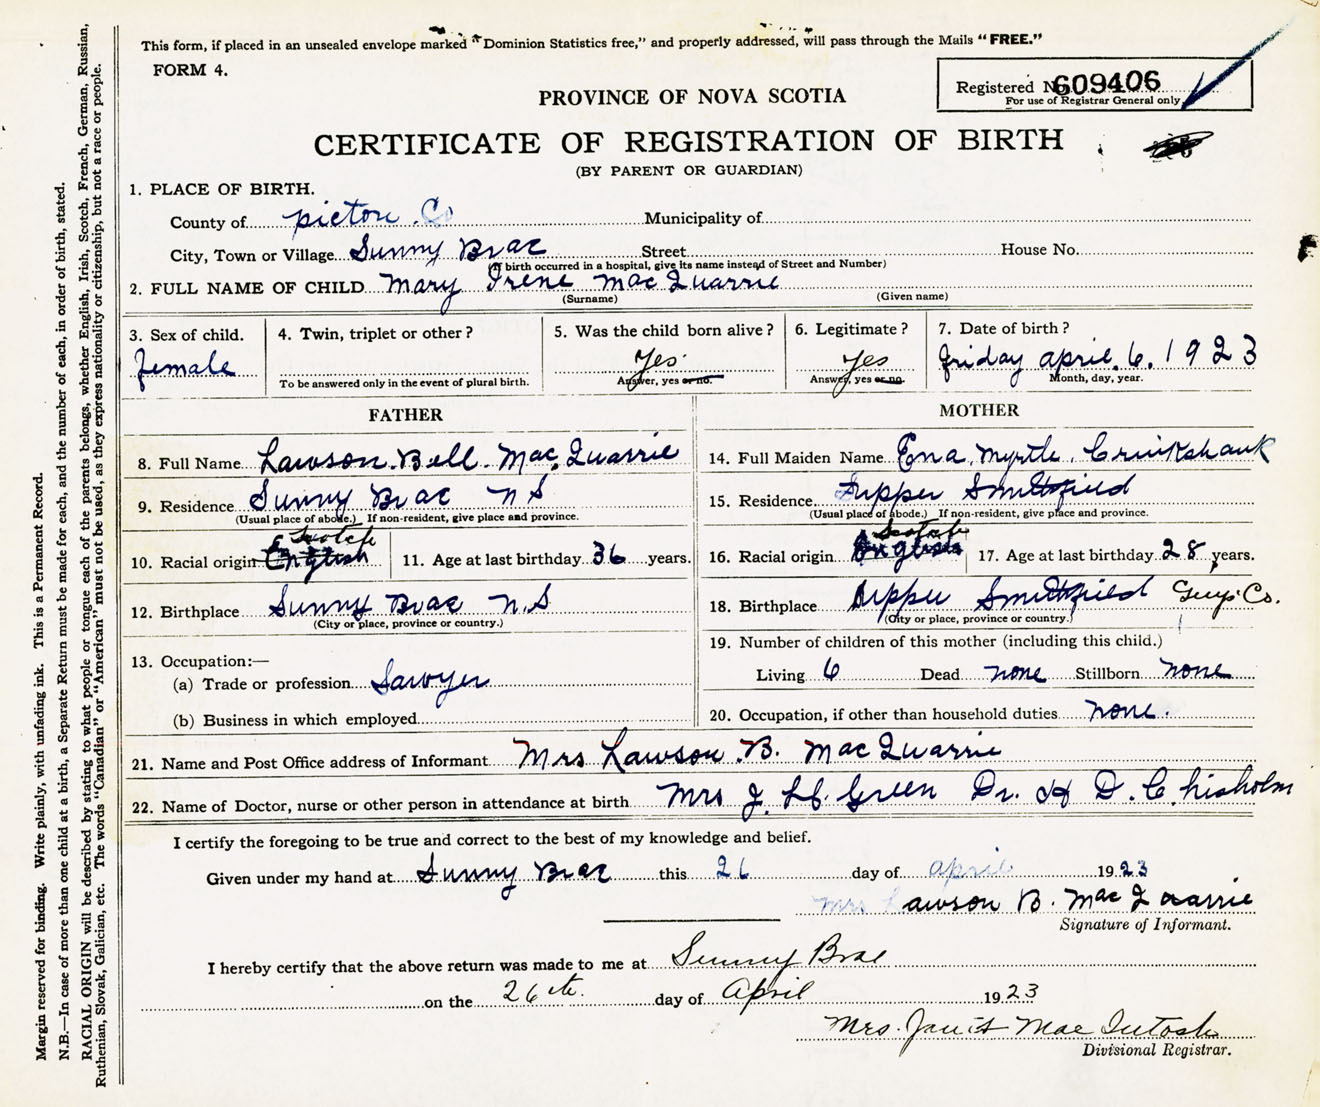 This form, if placed in an unsealed envelope marked "Dominion Statistics free," and properly addressed, will pass through the Mails "FREE."
FORM 4.
Registered No. 609406
For use of Registrar General only
PROVINCE OF NOVA SCOTIA
CERTIFICATE OF REGISTRATION OF BIRTH
(BY PARENT OR GUARDIAN)
1. PLACE OF BIRTH.
County of pictou Co Municipality of
City, Town or Village Sunny Brae Street House No.
(If birth occurred in a hospital, give its name instead of Street and Number)
2. FULL NAME OF CHILD Mary Irene MacQuarrie
(Surname) (Given name)
3. Sex of child. female
4. Twin, triplet or other?
To be answered only in the event of plural birth.
5. Was the child born alive? Yes
Answer, yes or no.
6. Legitimate? Yes
Answer, yes or no
7. Date of birth?
friday april. 6. 1923
Month, day, year.
FATHER
8. Full Name Lawson Bell MacQuarrie
9. Residence Sunny Brae N S
(Usual place of abode.) If non-resident, give place and province.
10. Racial origin English Scotch
11. Age at last birthday 36 years.
12. Birthplace Sunny Brae N.S
(City or place, province or country.)
13. Occupation:—
(a) Trade or profession Sawyer
(b) Business in which employed
MOTHER
14. Full Maiden Name Ena Myrtle Cruikshank
15. Residence Upper Smithfield
(Usual place of abode.) If non-resident, give place and province.
16. Racial origin English Scotch
17. Age at last birthday 28 years.
18. Birthplace Upper Smithfield Guys Co.
(City or place, province or country.)
19. Number of children of this mother (including this child.)
Living 6 Dead none Stillborn none
20. Occupation, if other than household duties none.
21. Name and Post Office address of Informant Mrs Lawson B. MacQuarrie
22. Name of Doctor, nurse or other person in attendance at birth Mrs J. Green Dr. H D. Chisholm
I certify the foregoing to be true and correct to the best of my knowledge and belief.
Given under my hand at Sunny Brae this 26 day of april 1923
Mrs Lawson B. MacQuarrie
Signature of Informant.
I hereby certify that the above return was made to me at Sunny Brae
on the 26th. day of April 1923
Mrs. Janet MacIntosh
Divisional Registrar.
Margin reserved for binding. Write plainly, with unfading ink. This is a Permanent Record.
N.B.—In case of more than one child at a birth, a Separate Return must be made for each, and the number of each, in order of birth, stated.
RACIAL ORIGIN will be described by stating to what people or tongue each of the parents belongs, whether English, Irish, Scotch, French, German, Russian,
Ruthenian, Slovak, Galician, etc. The words "Canadian" or "American" must not be used, as they express nationality or citizenship, but not a race or people.